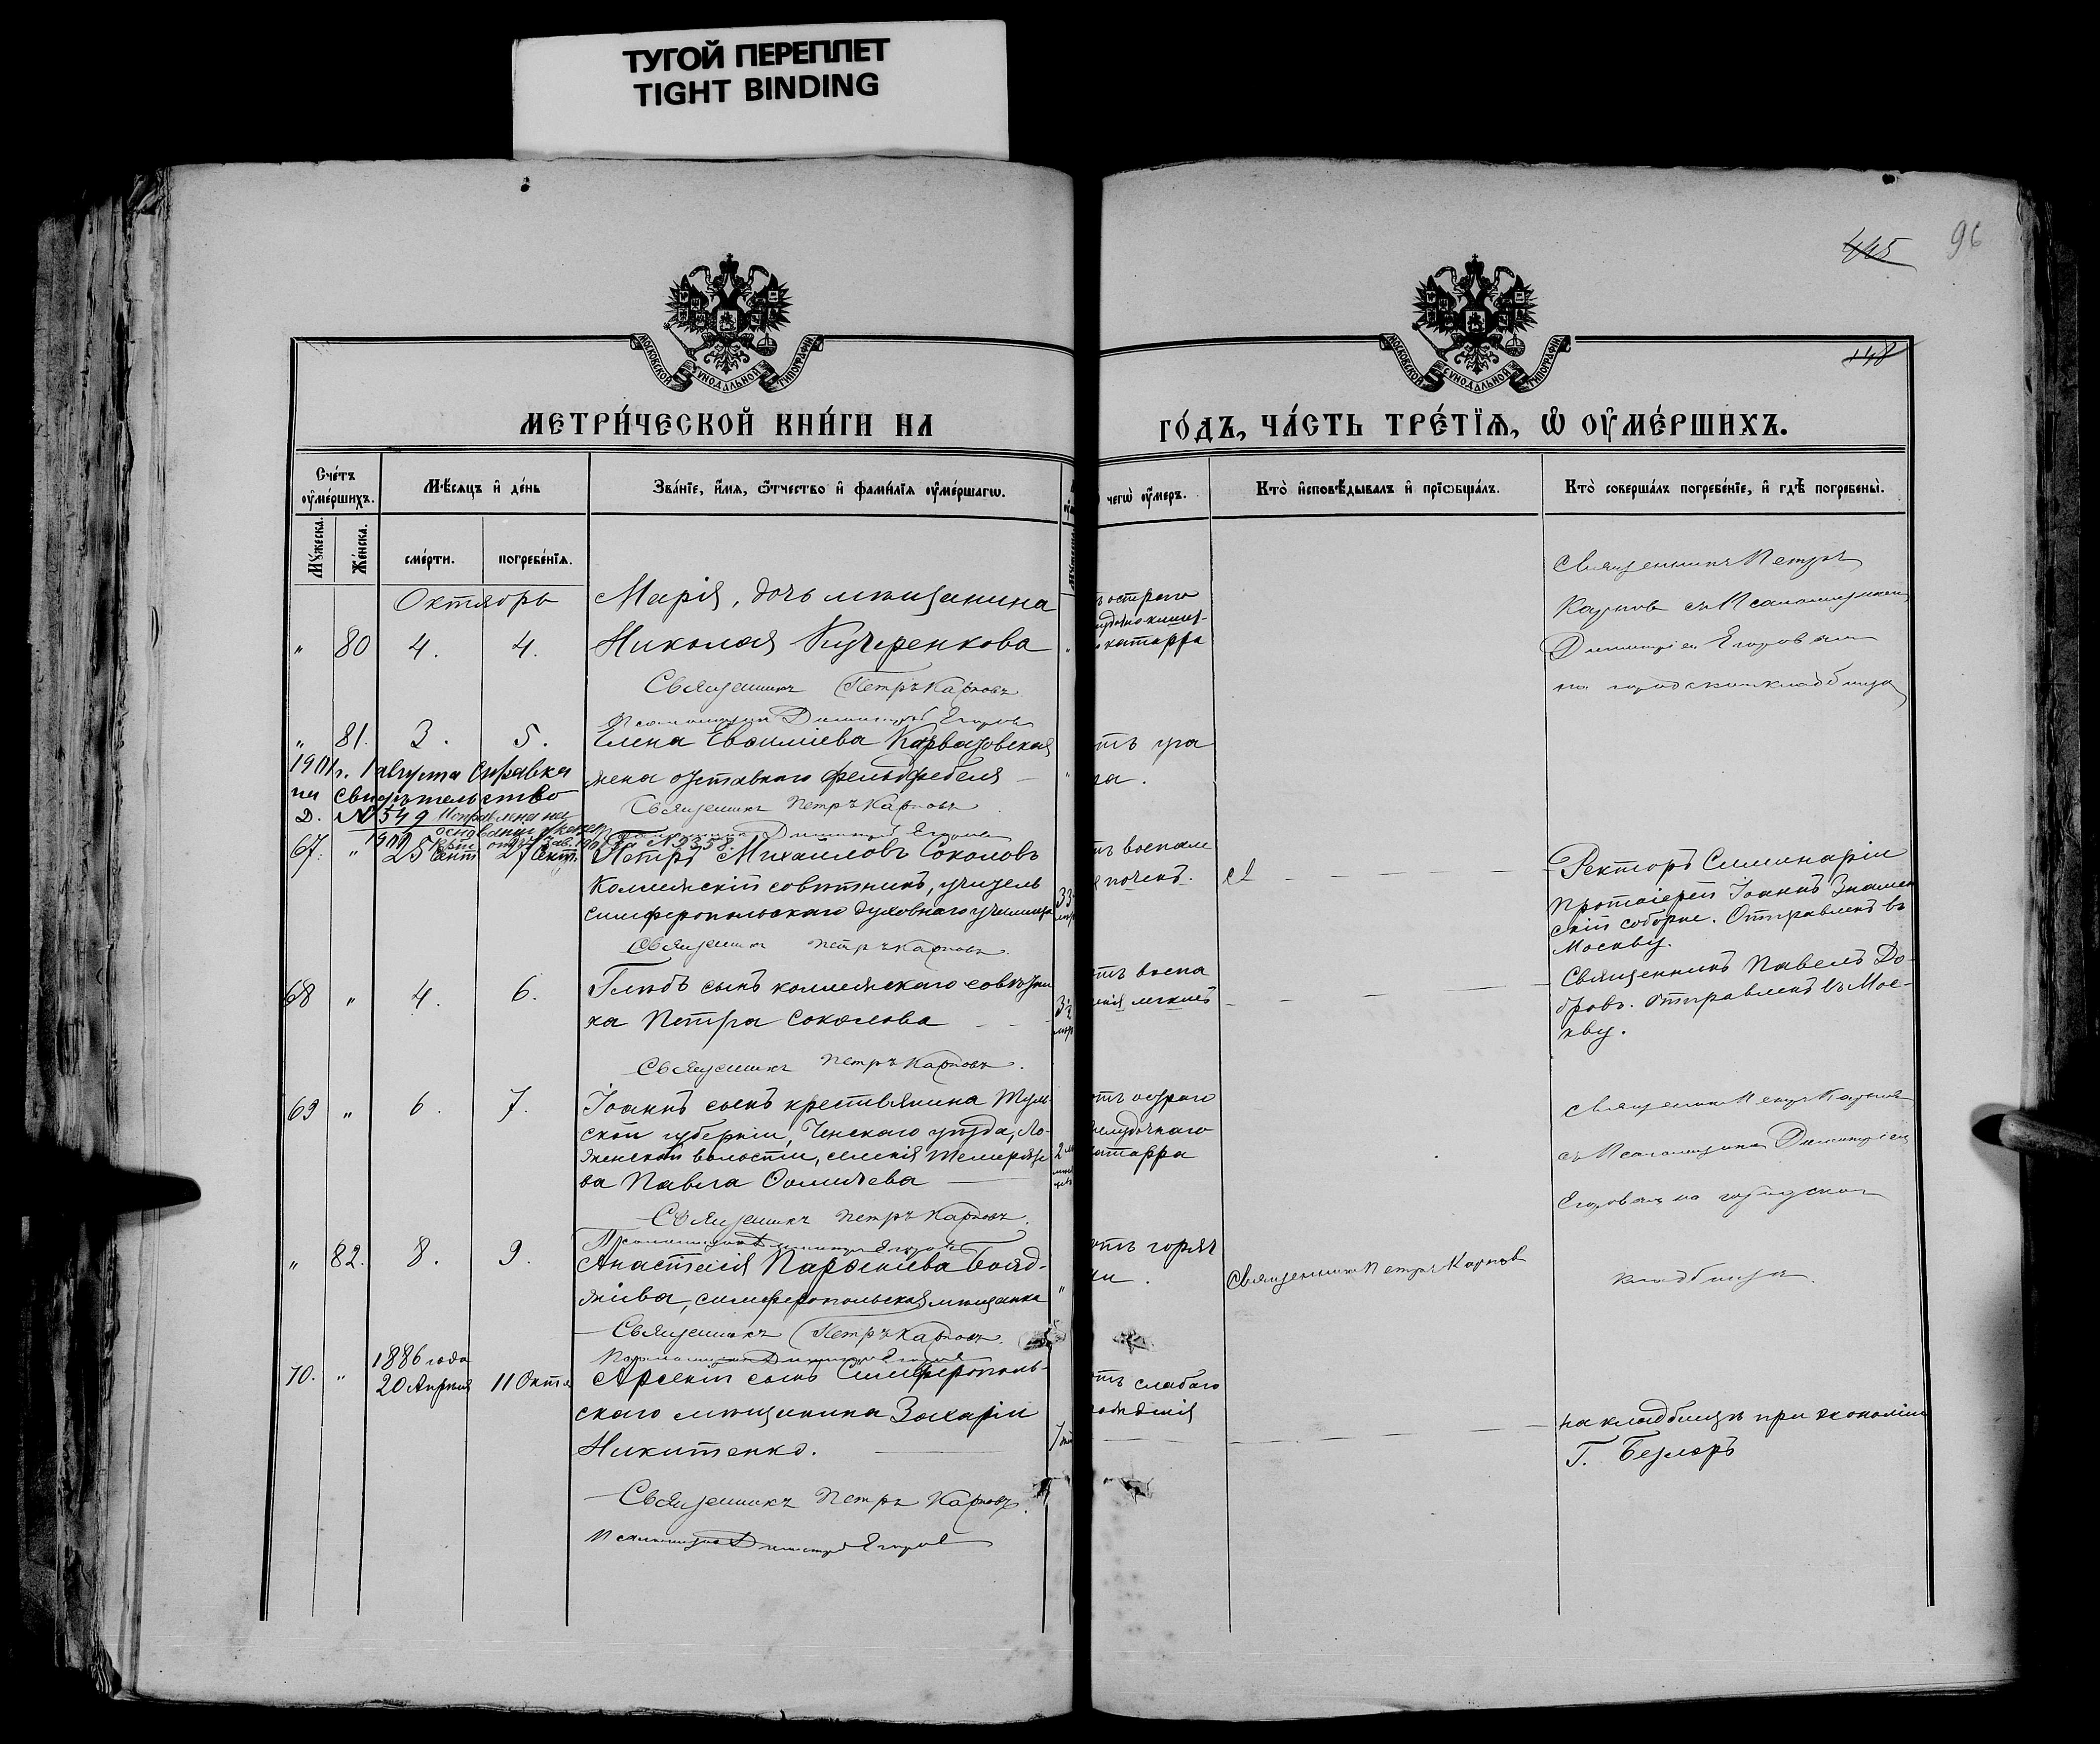 ТУГОЙ ПЕРЕПЛЕТ
TIGHT BINDING
96
445
148
МОСКОВСКОЙ СѴНОДАЛЬНОЙ ТИПОГРАФІИ
МОСКОВСКОЙ СѴНОДАЛЬНОЙ ТИПОГРАФІИ
МЕТРИ́ЧЕСКОЙ КНИ́ГИ НА
ГО́ДЪ, ЧА́СТЬ ТРЕ́ТЇѦ, Ѡ҆ ОУ҆МЕ́РШИХЪ.
Сче́тъ
оу҆ме́ршихъ.
Мѣ́сяцъ и҆ де́нь
Зва́нїе, и҆́мѧ, ѻ҆́тчество и҆ фами́лїѧ оу҆ме́ршагѡ.
чегѡ̀ оу҆́меръ.
Кто̀ и҆сповѣ́дывалъ и҆ прїѡбща́лъ.
Кто̀ соверша́лъ погребе́нїе, и҆ гдѣ̀ погребены̀.
Мꙋ́жеска.
Же́нска.
сме́рти.
погребе́нїѧ.
Октябрь
" 80 4. 4.
Марія, дочь мѣщанина
Николая Кучеренкова
Священникъ Петръ Карповъ
Псаломщикъ Димитрій Егоровъ
остраго
катарра
Священникъ Петръ
Карповъ съ Псаломщикомъ
Димитріемъ Егоровымъ
на городскомъ кладбищѣ
" 81. 3. 5.
Елена
жена отставного фельдфебеля
Священникъ Петръ Карповъ
Псаломщикъ Димитрій Егоровъ
1901 г. 1 августа Справка
на свидѣтельство
№ 549
№ 2358.
67. " 25 Сент. 27 Сент.
Петръ Михаиловъ Соколовъ
Коллежскій совѣтникъ, учитель
симферопольскаго духовнаго училища
Священникъ Петръ Карповъ.
33
воспале
почекъ.
Ректоръ Семинаріи
Протоіерей Іоаннъ Знамен
скій соборне. Отправленъ въ
Москву.
68 " 4. 6.
Глѣбъ сынъ коллежскаго совѣтни
ка Петра Соколова
Священникъ Петръ Карповъ.
отъ воспа
ленія легкихъ
Священникъ Павелъ До-
бровъ. Отправленъ въ Мос-
кву.
69 " 6. 7.
Іоаннъ сынъ крестьянина Туль
ской губерніи, Ченскаго уѣзда, Ло-
женской волости, селенія
ва Павла
Священникъ Петръ Карповъ.
Псаломщикъ Димитрій Егоровъ
отъ остраго
желудочнаго
катарра
Священникъ Петръ Карповъ
съ Псаломщикомъ Димитріемъ
Егоровымъ на городскомъ
кладбищѣ.
" 82. 8. 9.
Анастасія Парѳеніева Бояд-
жіева, симферопольская мѣщанка
Священникъ Петръ Карповъ.
Псаломщикъ Димитрій Егоровъ
отъ горяч
ки.
Священникъ Петръ Карповъ
70. " 1886 года
20 Апрѣля 11 Октя
Арсеній сынъ Симферополь-
скаго мѣщанина Захаріи
Никитенко.
Священникъ Петръ Карповъ.
Псаломщикъ Димитрій Егоровъ
отъ слабаго
рожденія
на кладбищѣ при экономіи
Г. Безлеръ